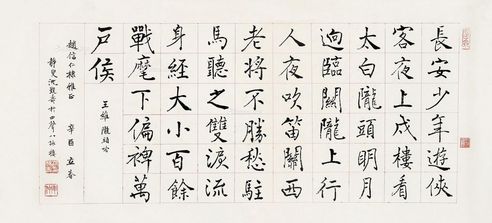 長安少年遊俠
客夜上戍樓看
太白隴頭明月
逈臨關隴上行
人夜吹笛關西
老將不勝愁駐
馬聽之雙淚流
身經大小百餘
戰麾下偏裨萬
戶侯
王維 隴頭吟
信仁棣雅正 辛酉 立春
靜叟沈